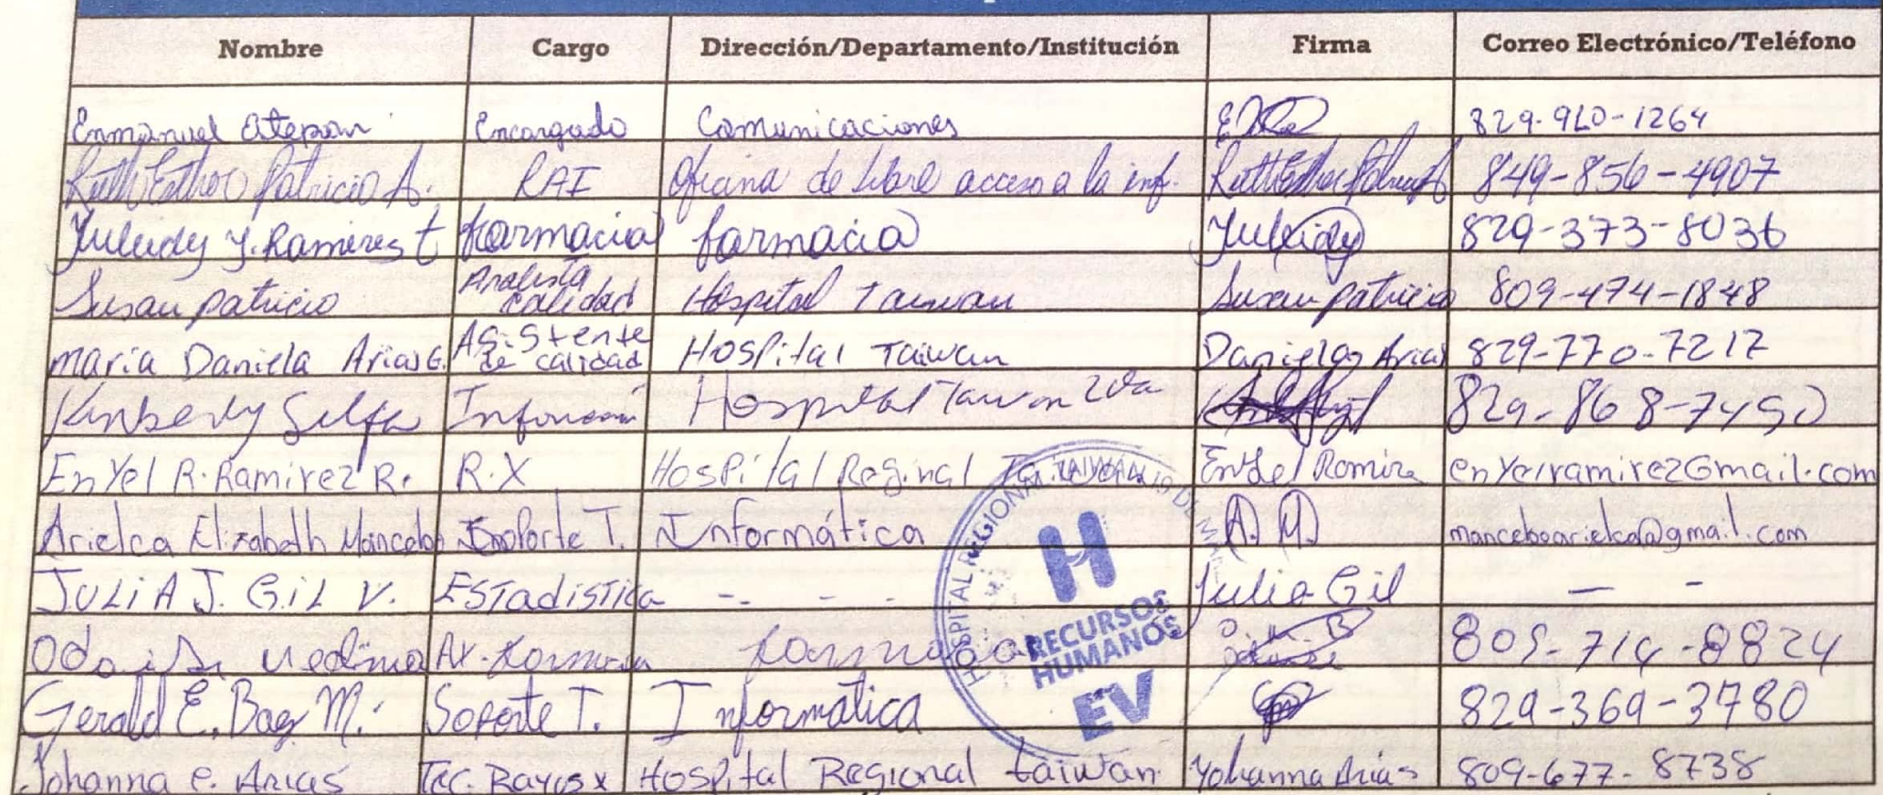 Nombre Cargo Dirección/Departamento/Institución Firma Correo Electrónico/Teléfono
Enmanuel Encargado Comunicaciones 829-960-1264
Ruth Esther Patricio A. RAI Oficina de libre acceso a la inf. Ruth Esther 849-856-4907
Yuleidy Y. Ramires t farmacia farmacia Yuleidy 829-373-8036
Susan patricio Analista calidad Hospital Taiwan Susan patricio 809-474-1848
maria Daniela Arias G. Asistente de calidad HOSPital Taiwan Daniela Arias 829-770-7217
Kinberly Hospital Taiwan 829-868-7450
EnYel R. Ramirez R. R.X HosPital Reginal Taiwan enyelramirezGmail.com
Arielca Elizabeth Mancebo Soporte T. Informática A.M. manceboarielca@gmail.com
JULIA J. GIL V. ESTadística -- - - Julia Gil — -
farmacia 809-714-8824
Gerald E. Baez M. Soporte T. Informática 829-369-3780
Johanna E. Arias Tec. Rayos x Hospital Regional taiwan Yohanna Arias 809-677-8738
HOSPITAL REGIONAL TAIWAN
H
RECURSOS
HUMANOS
EV